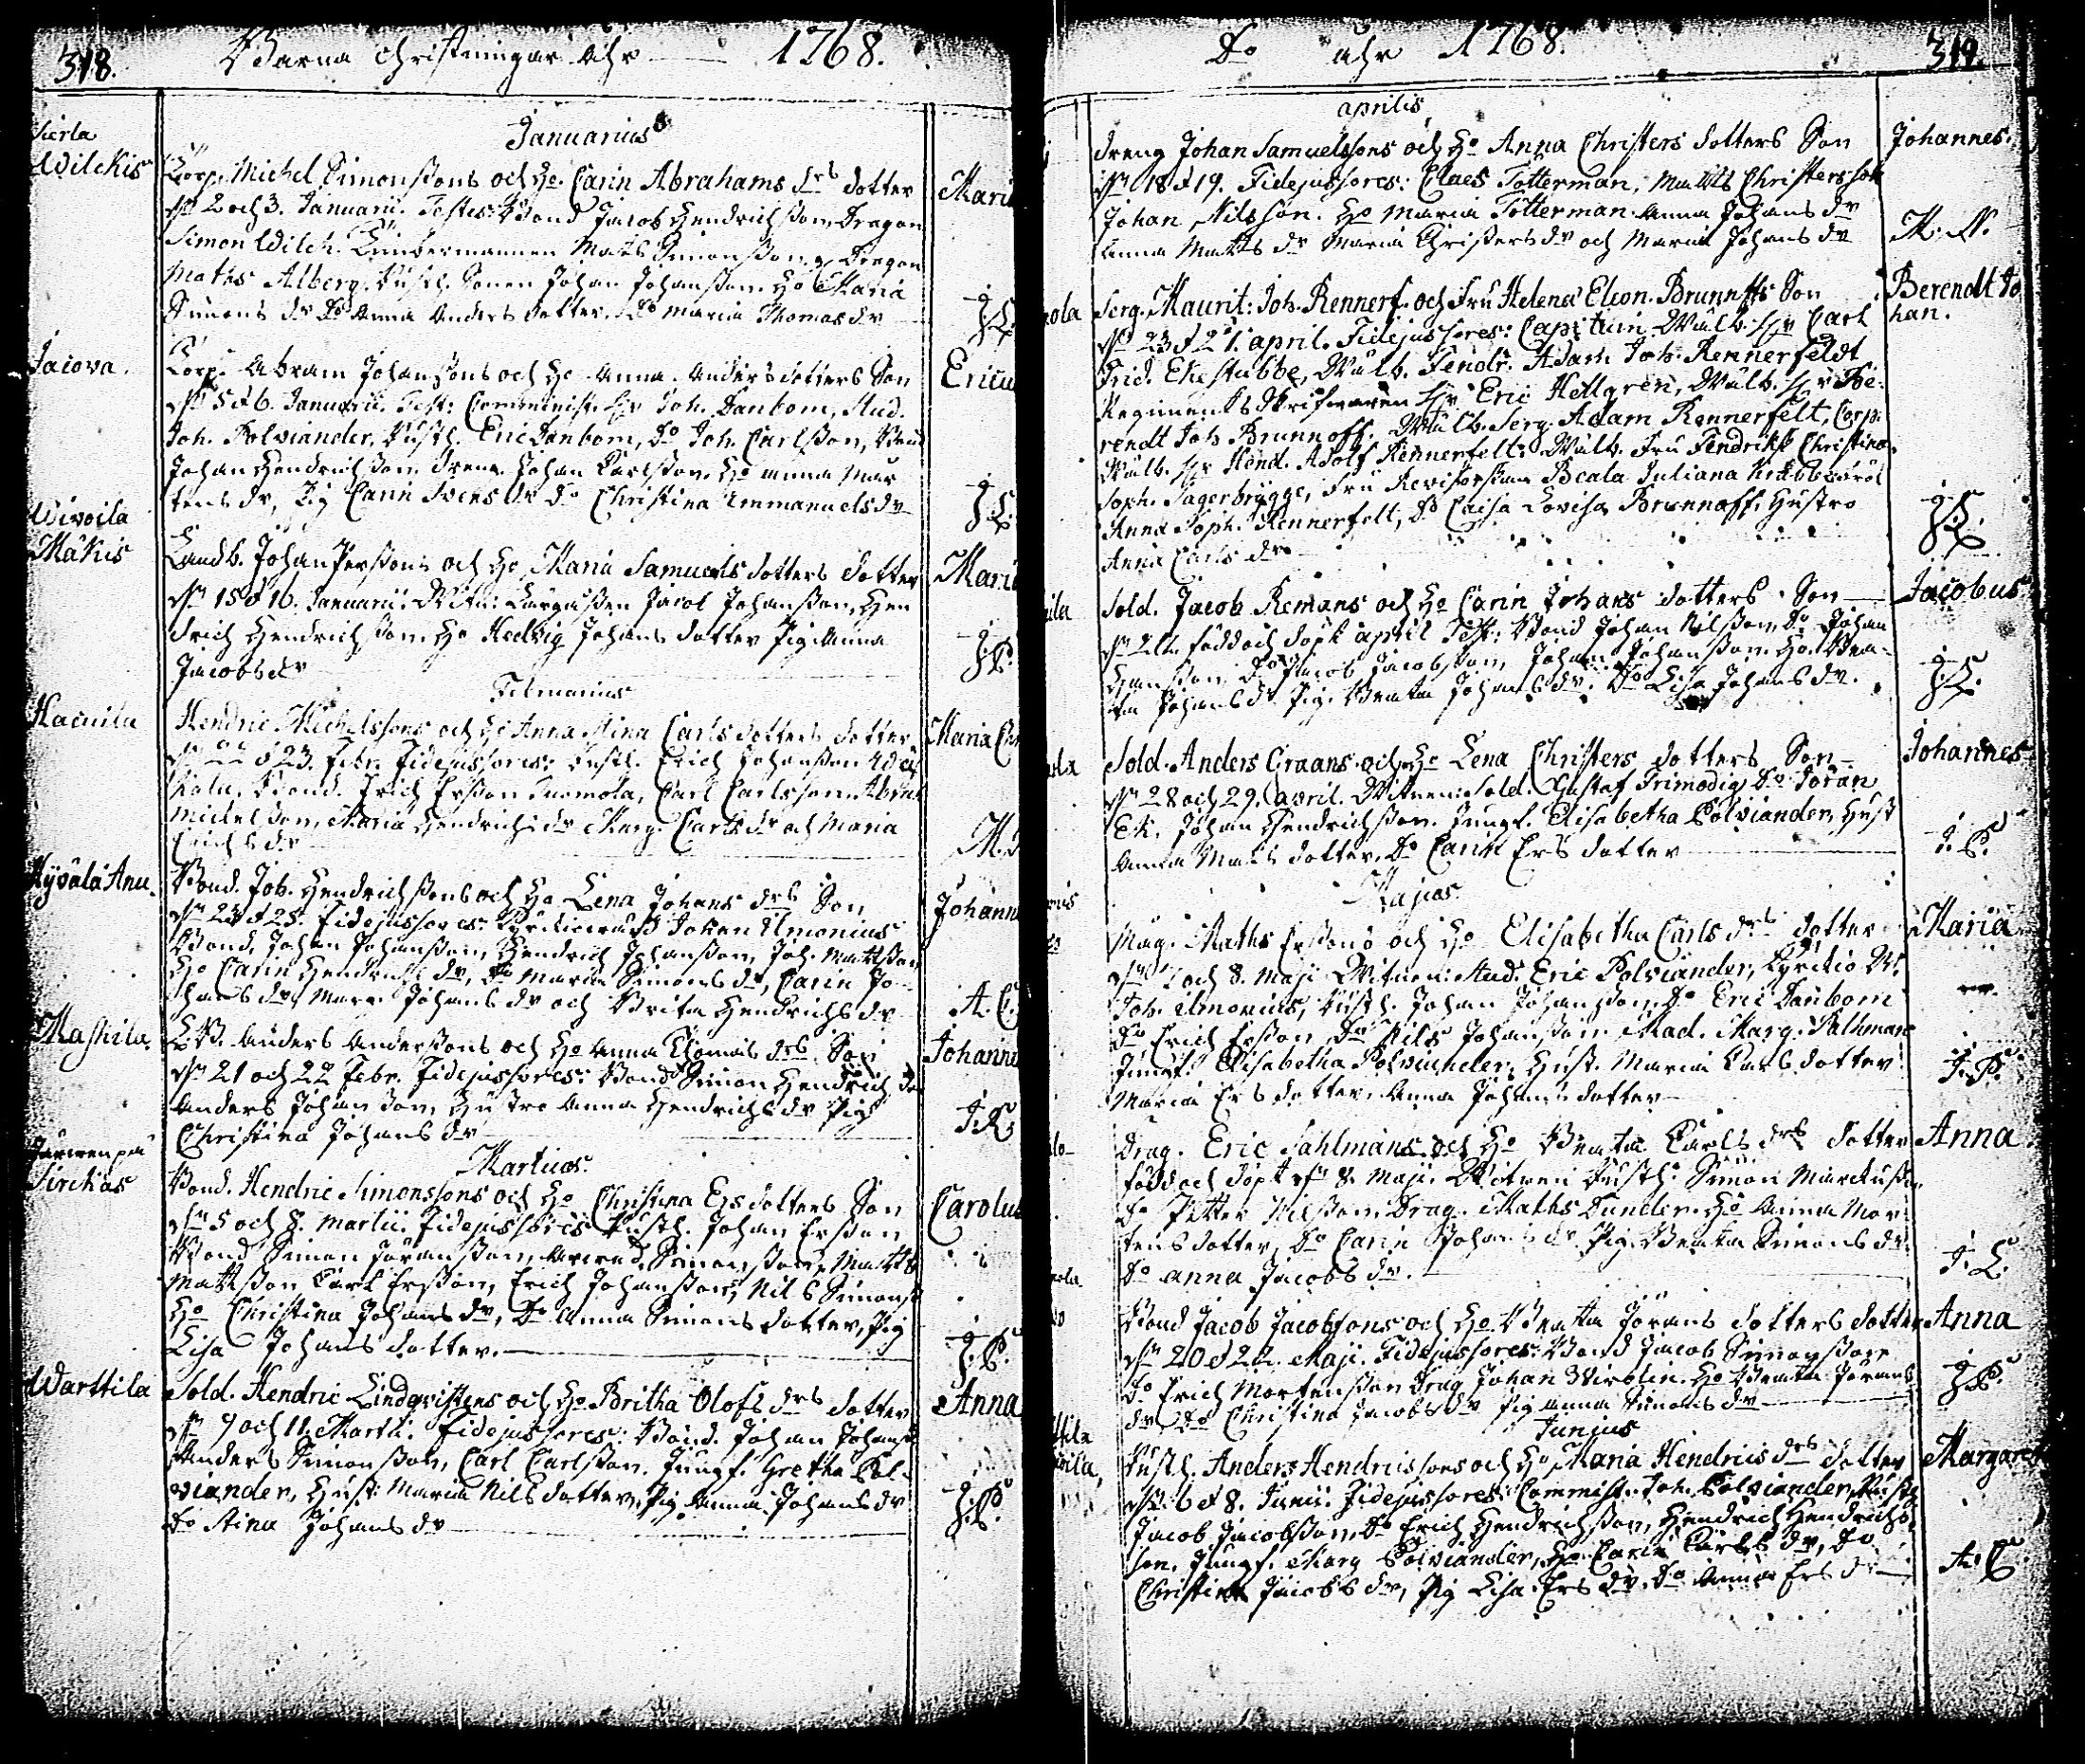 318. Barna Christningar Åhr 1768.
Januarius
Sierla
Wilckis
Corp. Michel Simonssons och Ho. Carin Abrahams drs dotter Mari
d. 2 och 3. Januarii. Testes: Bond Jacob Hendrichsson, Dragon
Simon Wilch. Timbermannen Mats Simonsson, Dragon
Maths Alberg. Rusth. Sonen Johan Johansson. Ho Maria
Simons dr Do Anna Anders dotter. Do Maria Thomas dr
Jacova.
Corp. Abram Johanssons och Ho Anna Anders dotters Son Ericu
d. 5 d 6. Januarii. Test: Comminist. Hr Joh. Danbom, Stud.
Joh. Polviander, Rusth. Eric Danbom, Do Joh. Carlsson, Bond
Johan Hendrichsson, dreng Johan Carlsson. Ho Anna Mår
tens dr, Pig Carin Svens dr Do Christina Emmanuels dr
Wivoila
Mäkis
Landb. Johan Perssons och Ho Maria Samuels dotters dotter Mari
d. 15 d 16. Januarii. Witn: Jacob Johansson, Hen
drich Hendrichsson. Ho Hedvig Johans dotter Pig. Anna
Jacobs dr
Februarius
Hacuila
Hendric Michelssons och Ho Anna Stina Carls dotters dotter Maria Chr
d. 22 d 23. Febr. Fidejussores: Rusth. Erich Johansson
Bond. Erich Ersson Tuomola, Carl Carlsson. Abrah
Michelsson, Maria Hendrichs dr Marg. Carls dr och Maria
Erichs dr M.
Kyöälä Anu.
Bond. Joh. Hendrichssons och Ho Lena Johans drs Son Johann
d. 23 d 25. Fidejussores: Kyrkiovärd Johan Ilmonius
Bond, Johan Johansson, Hendrich Johansson, Joh. Mattsson
Ho Carin Hendrichs dr, Do Maria Simons dr, Carin Jo
hans dr, Mari Johans dr och Brita Hendrichs dr A. C.
Maskila.
LB. Anders Anderssons och Ho Anna Thomas drs Son Johanne
d. 21 och 22 Febr. Fidejussores: Bond Simon Hendrichsson
Anders Johansson, Hustro Anna Hendrichs dr Pig
Christina Johans dr
Martius.
Järvenpä
Sirckas
Bond. Hendric Simonssons och Ho Christina Ers dotters Son Carolus
d. 5 och 8. Martii. Fidejussores Rusth. Johan Ersson
Bond Simon Göransson, Simonsson, Matts
Mattsson Carl Ersson, Erich Johansson, Nils Simonss
Ho Christina Johans dr, Do Anna Simons dotter, Pig
Lisa Johans dotter.
Warttila
Sold. Hendric Lindqvistens och Ho Britha Olofs drs dotter Anna
d. 7 och 11 Martii. Fidejussores: Bond. Johan Johanss
Anders Simonsson, Carl Carlsson. Jungf. Gretha Pol
viander, Hust. Maria Nils dotter, Pig. Anna Johans dr
Do Stina Johans dr
Do Åhr 1768. 319.
Aprilis
dreng Johan Samuelssons och Ho Anna Christers dotters Son Johannes.
d. 18 d 19. Fidejussores: Claes Totterman, Matts Christersson
Johan Nilsson. Ho Maria Totterman. Anna Johans dr
Anna Matts dr Maria Christers dr och Maria Johans dr M. N.
Serg. Maurit: Joh. Rennerf. och Fru Helena Eleon. Brunoffs Son Berendt Jo
han.
d. 23 d 27. April. Fidejussores: Capitain Wälb. Hr Carl
Frid. Ekestubbe, Wälb. Fendr. Adam Joh. Rennerfeldt
Regiments skrifvaren Hr Eric Hellgren, Wälb. Hr Be
rendt Joh Brunnoff. Wälb. Serg. Adam Rennerfelt, Corp.
Wälb. Hr Hend. Adolf Rennerfelt. Wälb. Fru Fendrik Christina
Soph. Jägerbrygge, Fru Revisorskan Beata Juliana
Anna Soph. Rennerfelt, Do Caisa Lovisa Brunnoff, Hustro
Anna Carls dr
Sold. Jacob Remans och Ho Carin Johans dotters Son Jacobus
d. 22. född och döpt April Test: Bond Johan Nilsson, Do Johan
Hansson, Do Jacob Jacobsson, Johan Johansson. Ho Bea
ta Johans dr Pig. Beata Johans dr. Do Lisa Johans dr.
Sold. Anders Graans och Ho Lena Christers dotters Son Johannes
d. 28 och 29. April. Witnen: Sold. Gustaf Trimodig Do Göran
Ek, Johan Hendrichsson. Jungf. Elisabetha Polviander, Hust
Anna Mats dotter, Do Carin Ers dotter J. P.
Majus.
Mag. Maths Erssons och Ho Elisabetha Carls drs dotter Maria
d. 7 och 8. Maji Witnen: Stud. Eric Polviander, Kyrckio W.
Joh. Ilmonius, Rusth. Johan Johansson, Do Eric Danbom
Do Erich Ersson, Do Nils Johansson. Mad. Marg. Palhman
Jungf. Elisabetha Polviander, Hust. Maria Carls dotter
Maria Ers dotter, Anna Johans dotter J. P.
Drag. Eric Sahlmans och Ho Beata Carls drs dotter Anna
född och döpt d. 8. Maji. Witnen Rusth. Simon Marckusson
Do Petter Nilsson, Drag. Maths Dunder. Ho Anna Mår
tens dotter, Do Carin Johans dr. Pig. Beata Simons dr.
Do Anna Jacobs dr.
Bond Jacob Jacobssons och Ho Beata Jörans dotters dotter Anna
d. 20 d 22. Maji. Fidejussores: Bond Jacob Simonsson
Do Erich Mortensson Drag Johan Ho Beata Jörans
dr Do Christina Jacobs dr Pig Anna Simons dr
Junius
Rusth. Anders Hendricssons och Ho Maria Hendrics drs dotter Margaret
d. 6 d 8. Junii. Fidejussores: Commist. Joh. Polviander, Rusth
Jacob Jacobsson, Do Erich Hendrichsson, Hendrich Hendrichs
son. Jungf. Marg Polviander, Ho Carin Carls dr, Do
Christina Jacobs dr, Pig Lisa Ers dr. Do Anna Ers dr A. C